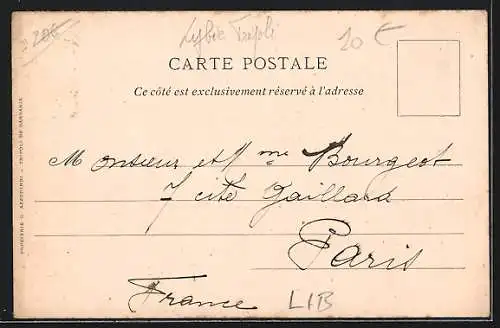 206
Lybie Tripoli
20 €
CARTE POSTALE
Ce côté est exclusivement réservé à l'adresse
Monsieur et Mme Bourgeot
7 cité Gaillard
Paris
France
LIB
TRIPOLI DE BARBARIE